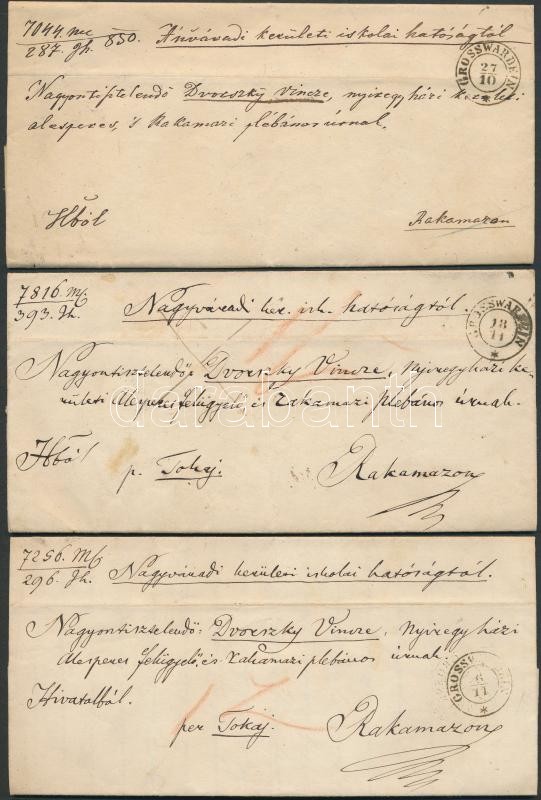 7044. 850. A n.váradi kerületi iskolai hatóságtól
287. Gh.
GROSSWARDEIN 27/10
Nagyontisztelendő Dvorszky Vincze, nyiregyházi kerületi
alesperes, 's Rakamazi plébános úrnak.
Hból Rakamazon
7816. Nagyváradi ker. isk. hatóságtól.
393. Gh.
GROSSWARDEIN 18/11
Nagyontisztelendő: Dvorszky Vincze, Nyiregyházi ke-
rületi Alesperes felügyelő és Rakamazi plébános úrnak.
Hból p. Tokaj. Rakamazon
darabanth
7256. Nagyváradi kerületi iskolai hatóságtól.
296. Gh.
Nagyontisztelendő: Dvorszky Vincze, Nyiregyházi
Alesperes felügyelő, és Rakamazi plébános úrnak.
GROSSWARDEIN 6/11
Hivatalból.
per Tokaj Rakamazon